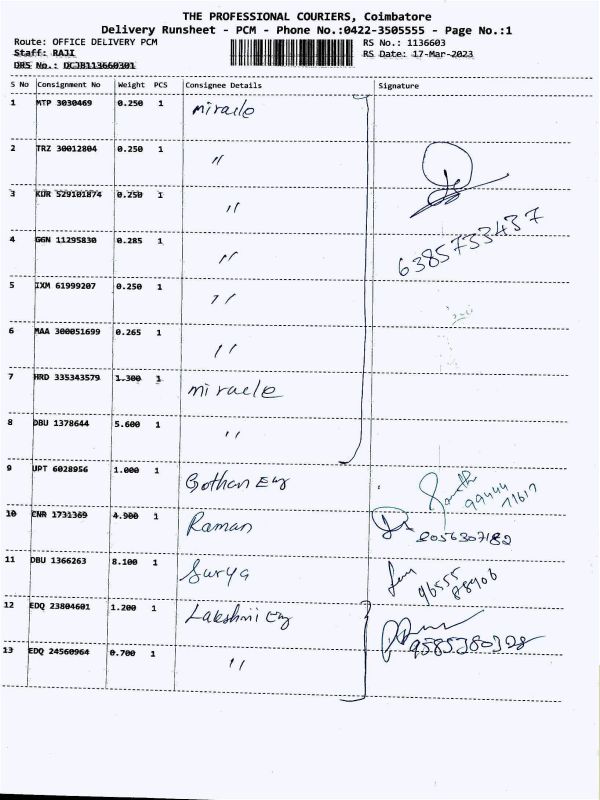 THE PROFESSIONAL COURIERS, Coimbatore
Delivery Runsheet - PCM - Phone No.:0422-3505555 - Page No.:1
Route: OFFICE DELIVERY PCM RS No.: 1136603
Staff: RAJI RS Date: 17-Mar-2023
DRS No.: DCJB113660301
S No Consignment No Weight PCS Consignee Details Signature
1 MTP 3030469 0.250 1 miracle
2 TRZ 30012804 0.250 1 "
3 KUR 529101874 0.250 1 "
6385733437
4 GGN 11295830 0.285 1 "
5 IXM 61999207 0.250 1 "
6 MAA 300051699 0.265 1 "
7 HRD 335343579 1.300 1 miracle
8 DBU 1378644 5.600 1 "
9 UPT 6028956 1.000 1 Gothan Eng
99444
71617
10 CNR 1731369 4.900 1 Raman 8056307182
11 DBU 1366263 8.100 1 Surya 96555
88906
12 EDQ 23804601 1.200 1 Lakshmi Eng
13 EDQ 24560964 0.700 1 "